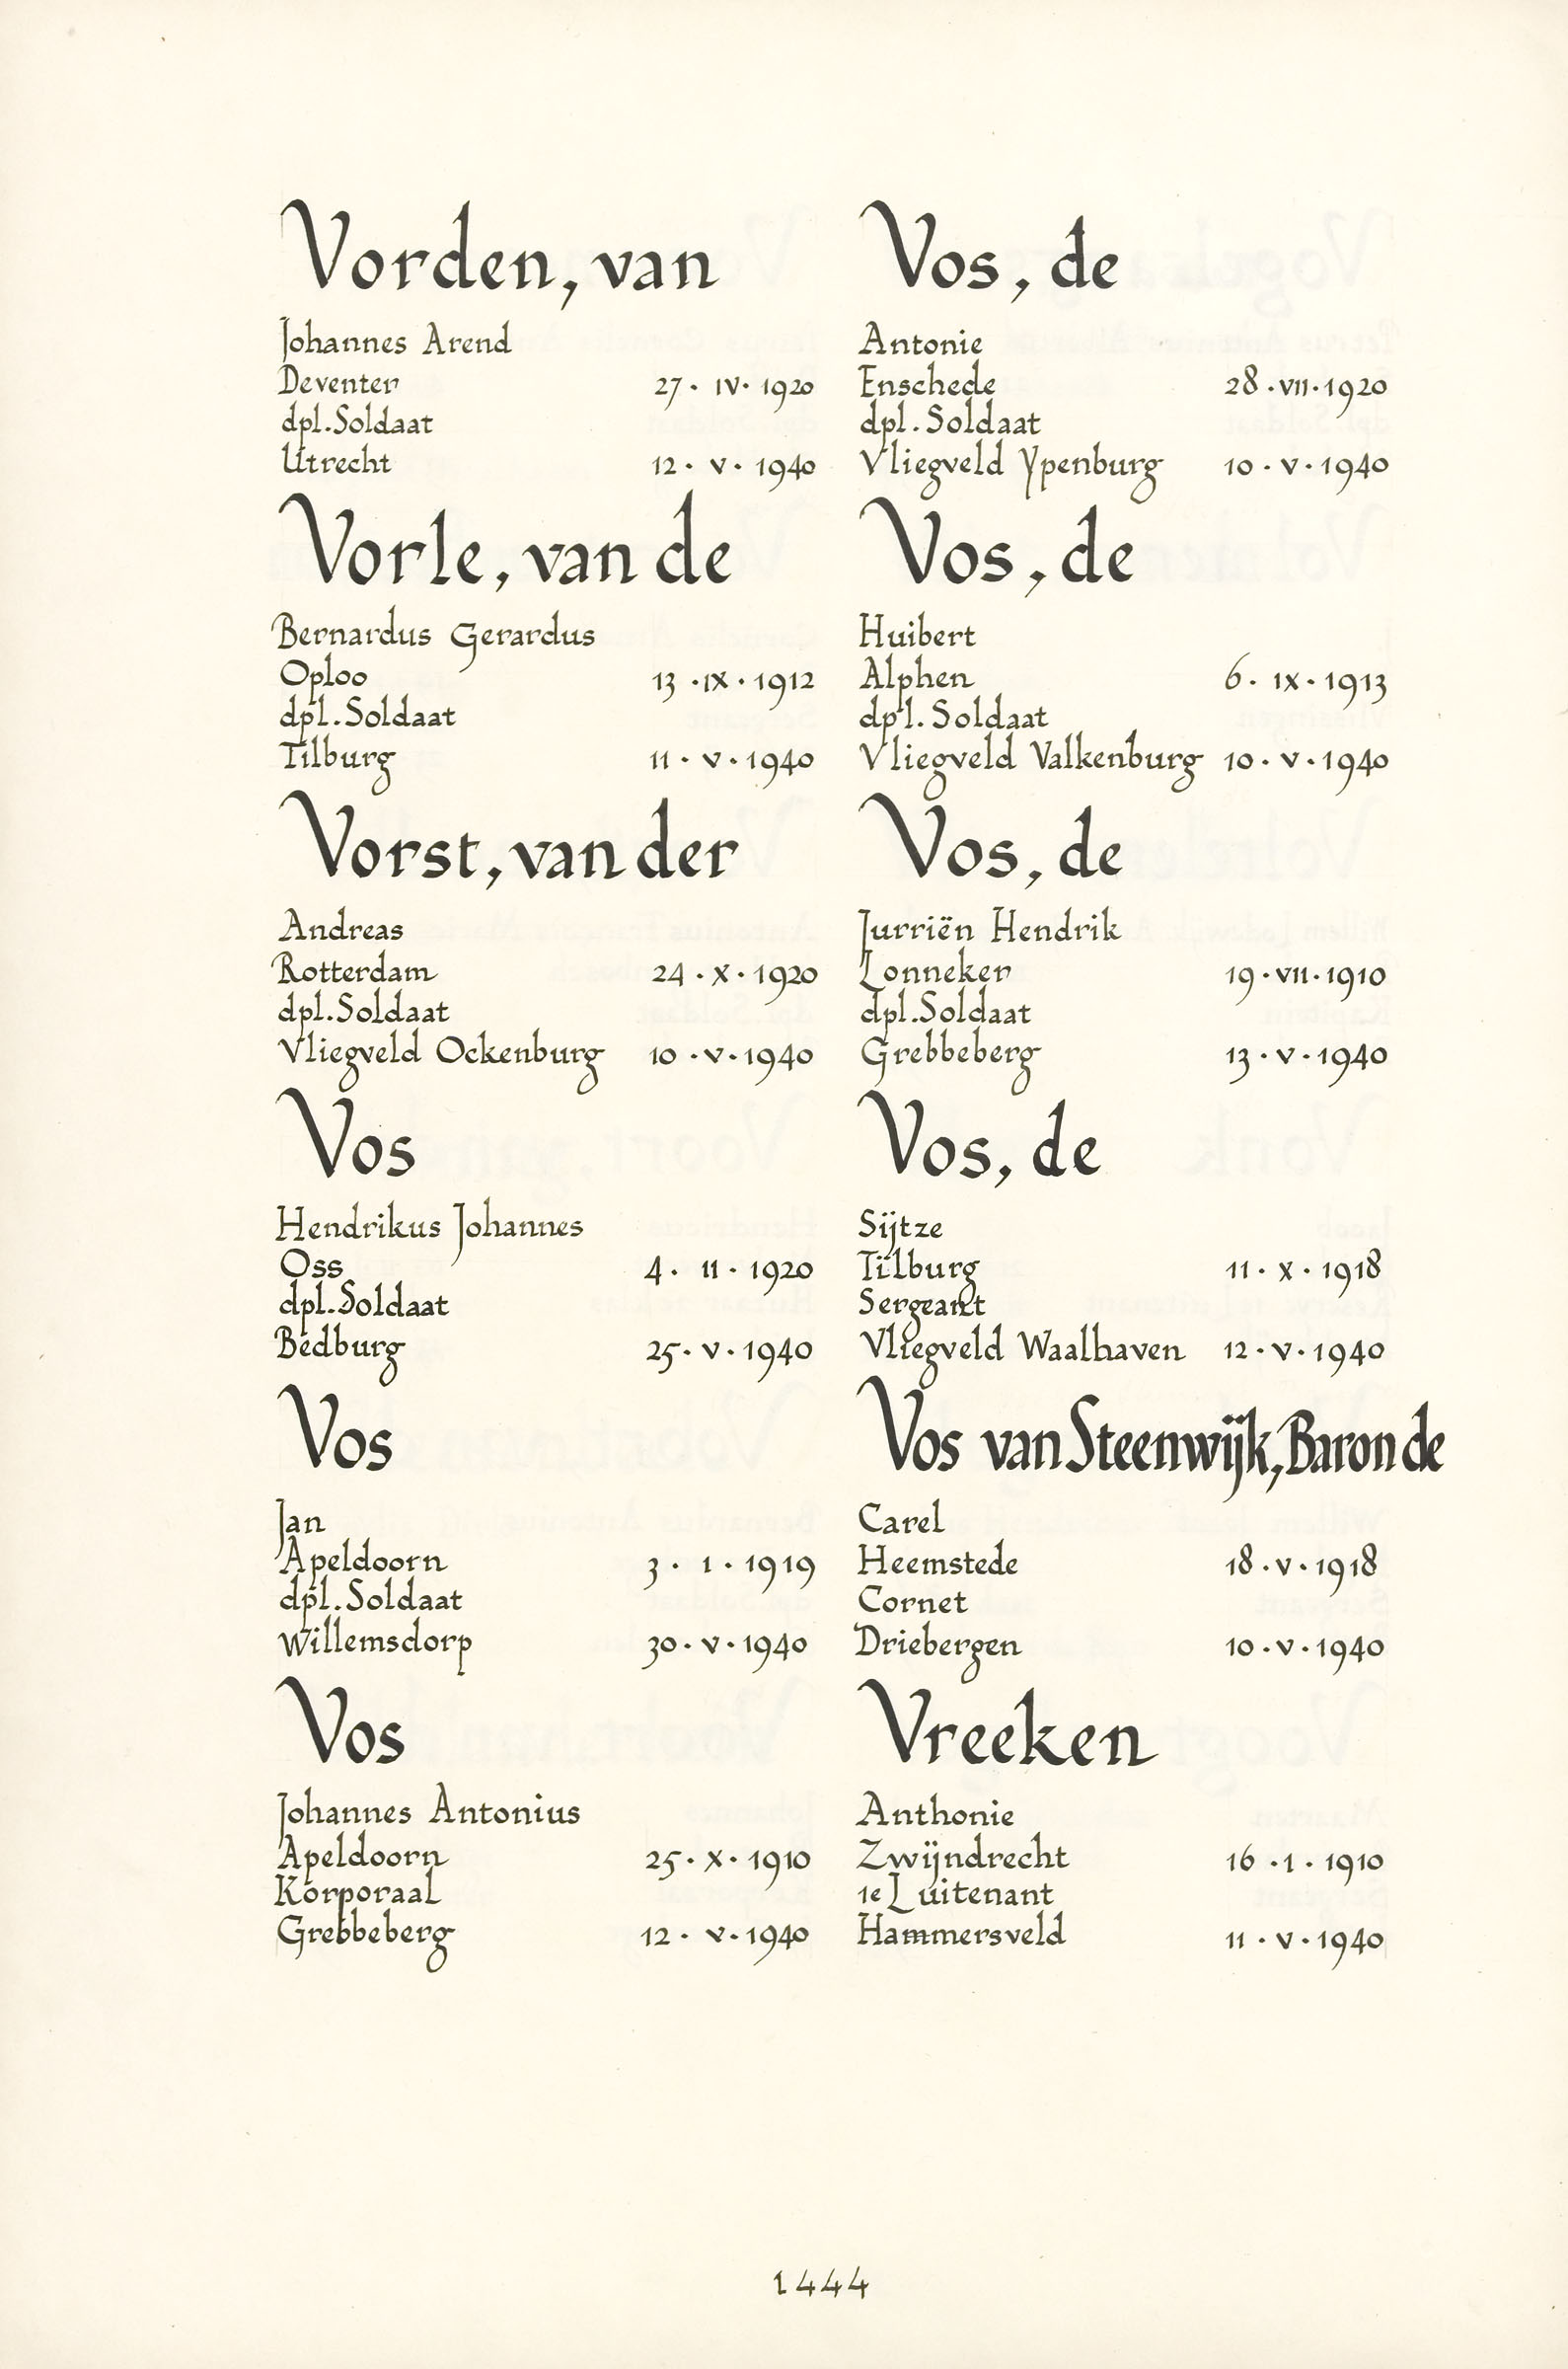 Vorden, van
Johannes Arend
Deventer 27 · IV · 1920
dpl. Soldaat
Utrecht 12 · V · 1940
Vorle, van de
Bernardus Gerardus
Oploo 13 · IX · 1912
dpl. Soldaat
Tilburg 11 · V · 1940
Vorst, van der
Andreas
Rotterdam 24 · X · 1920
dpl. Soldaat
Vliegveld Ockenburg 10 · V · 1940
Vos
Hendrikus Johannes
Oss 4 · 11 · 1920
dpl. Soldaat
Bedburg 25 · V · 1940
Vos
Jan
Apeldoorn 3 · 1 · 1919
dpl. Soldaat
Willemsdorp 30 · V · 1940
Vos
Johannes Antonius
Apeldoorn 25 · X · 1910
Korporaal
Grebbeberg 12 · V · 1940
Vos, de
Antonie
Enschede 28 · VII · 1920
dpl. Soldaat
Vliegveld Ypenburg 10 · V · 1940
Vos, de
Huibert
Alphen 6 · IX · 1913
dpl. Soldaat
Vliegveld Valkenburg 10 · V · 1940
Vos, de
Jurriën Hendrik
Lonneker 19 · VII · 1910
dpl. Soldaat
Grebbeberg 13 · V · 1940
Vos, de
Sijtze
Tilburg 11 · X · 1918
Sergeant
Vliegveld Waalhaven 12 · V · 1940
Vos van Steenwijk, Baron de
Carel
Heemstede 18 · V · 1918
Cornet
Driebergen 10 · V · 1940
Vreeken
Anthonie
Zwijndrecht 16 · 1 · 1910
1e Luitenant
Hammersveld 11 · V · 1940
1444